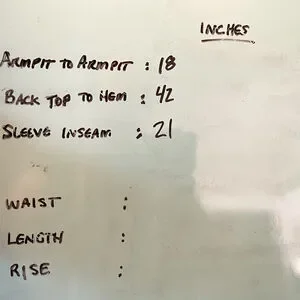 INCHES
ARMPIT TO ARMPIT : 18
BACK TOP TO HEM : 42
SLEEVE INSEAM : 21
WAIST :
LENGTH :
RISE :